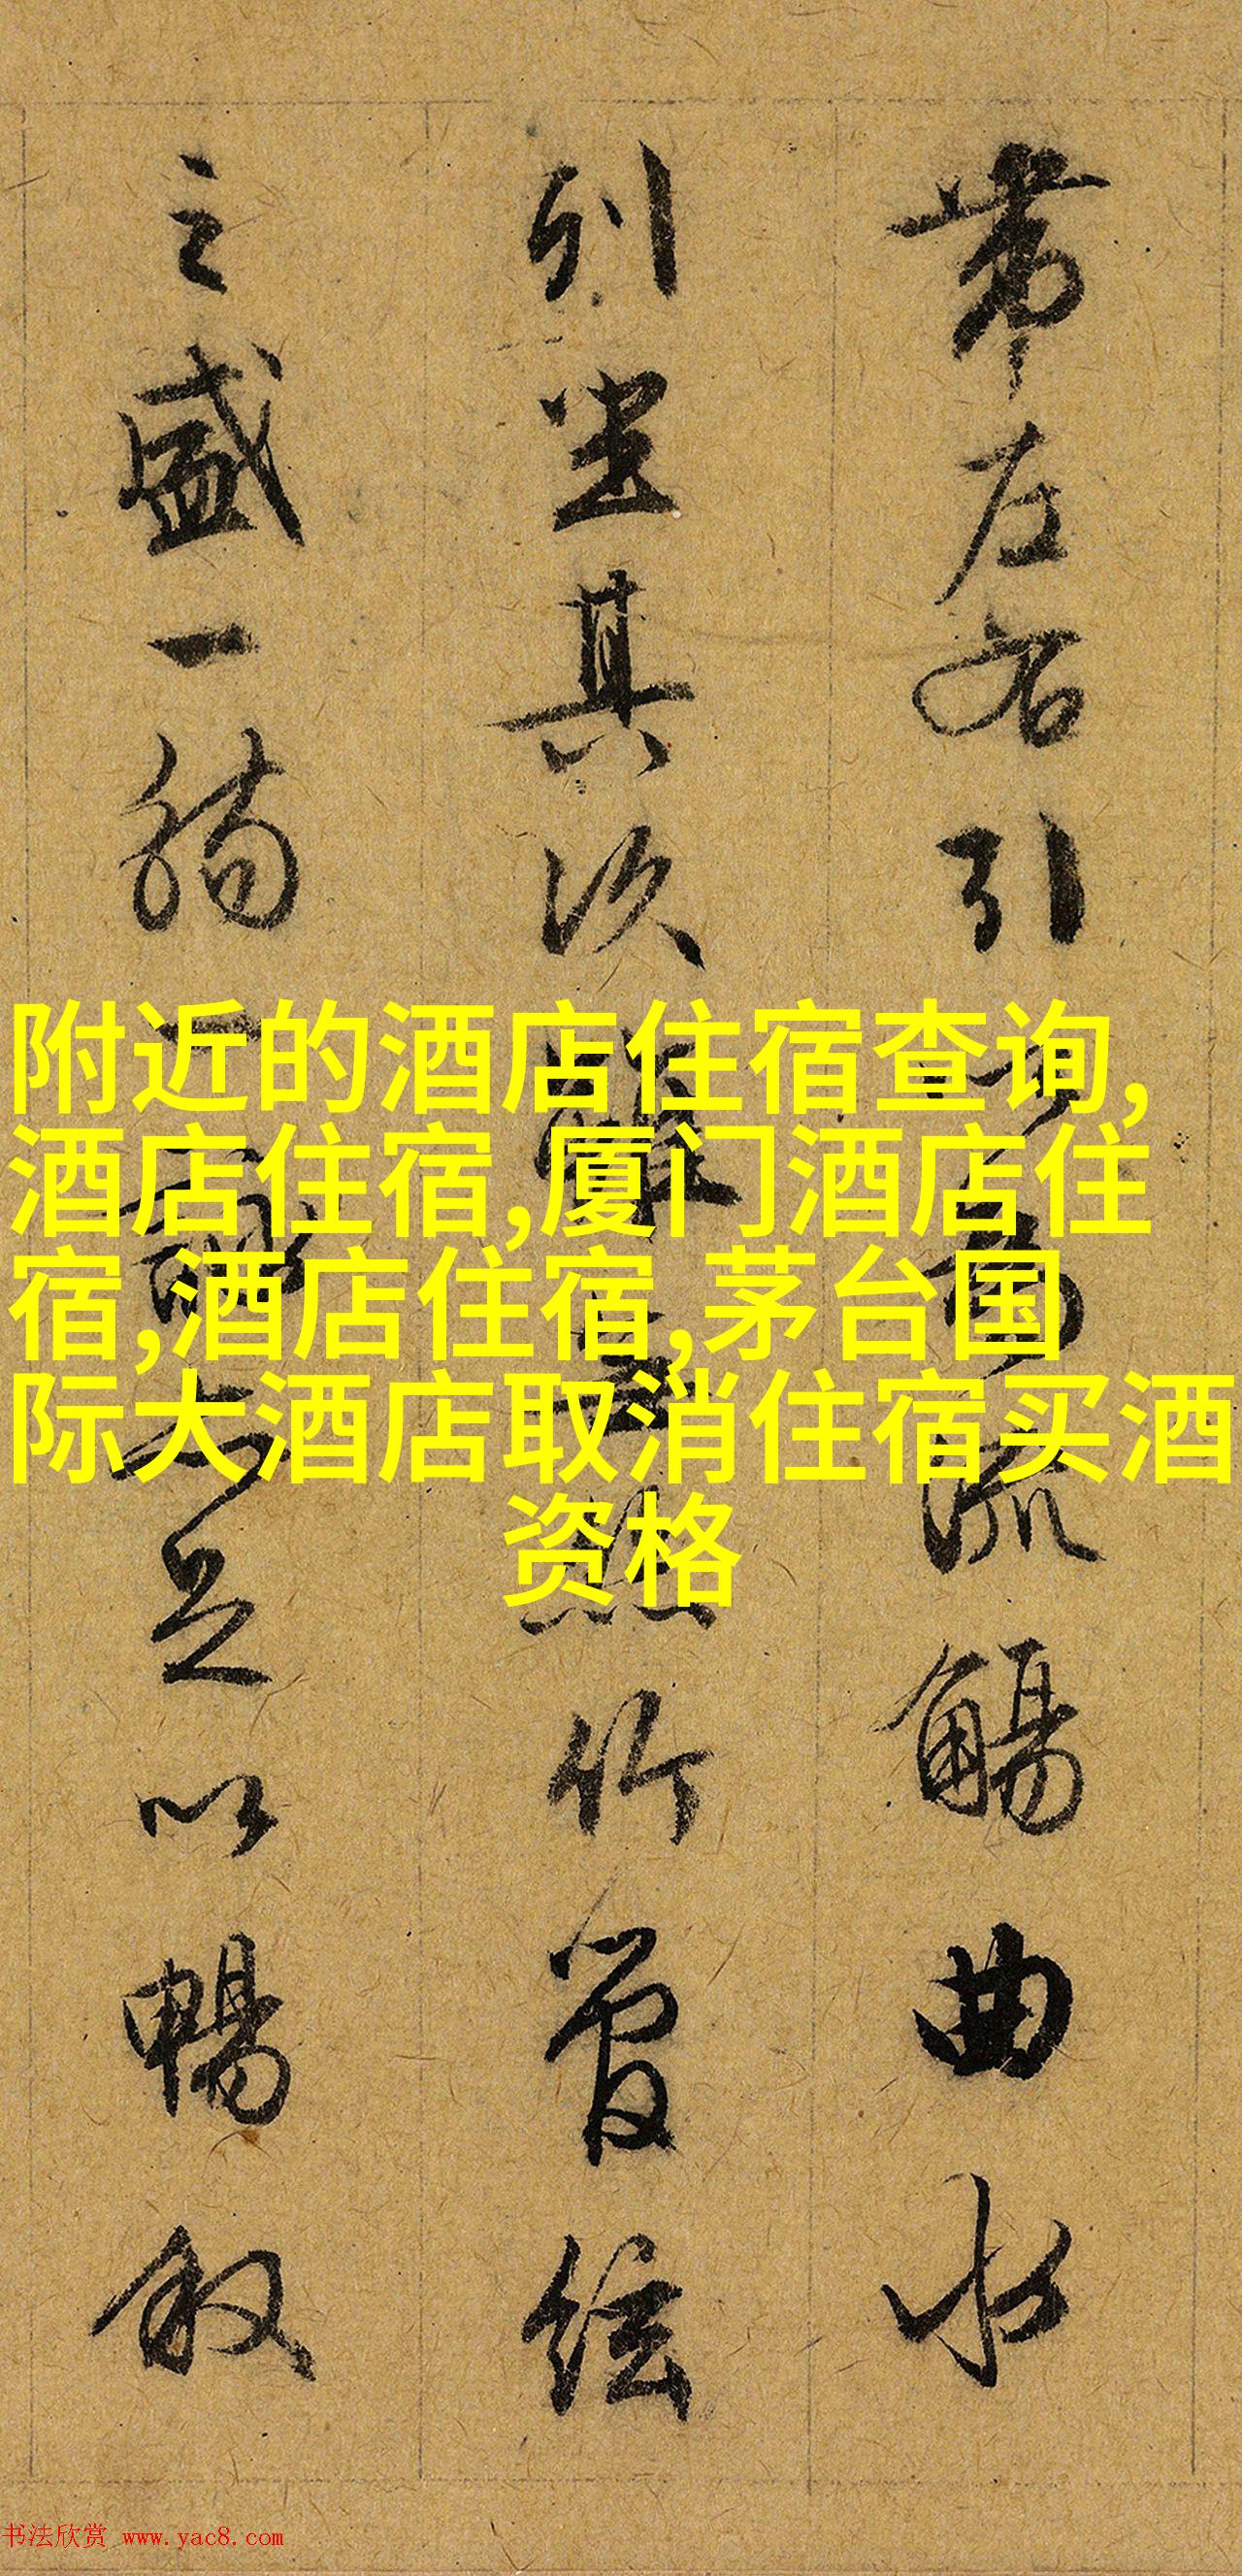 带左右引以为流觞曲水
列坐其次虽无丝竹管弦
之盛一觞一咏亦足以畅叙
附近的酒店住宿查询,
酒店住宿,厦门酒店住
宿,酒店住宿,茅台国
际大酒店取消住宿买酒
资格
书法欣赏 www.yac8.com